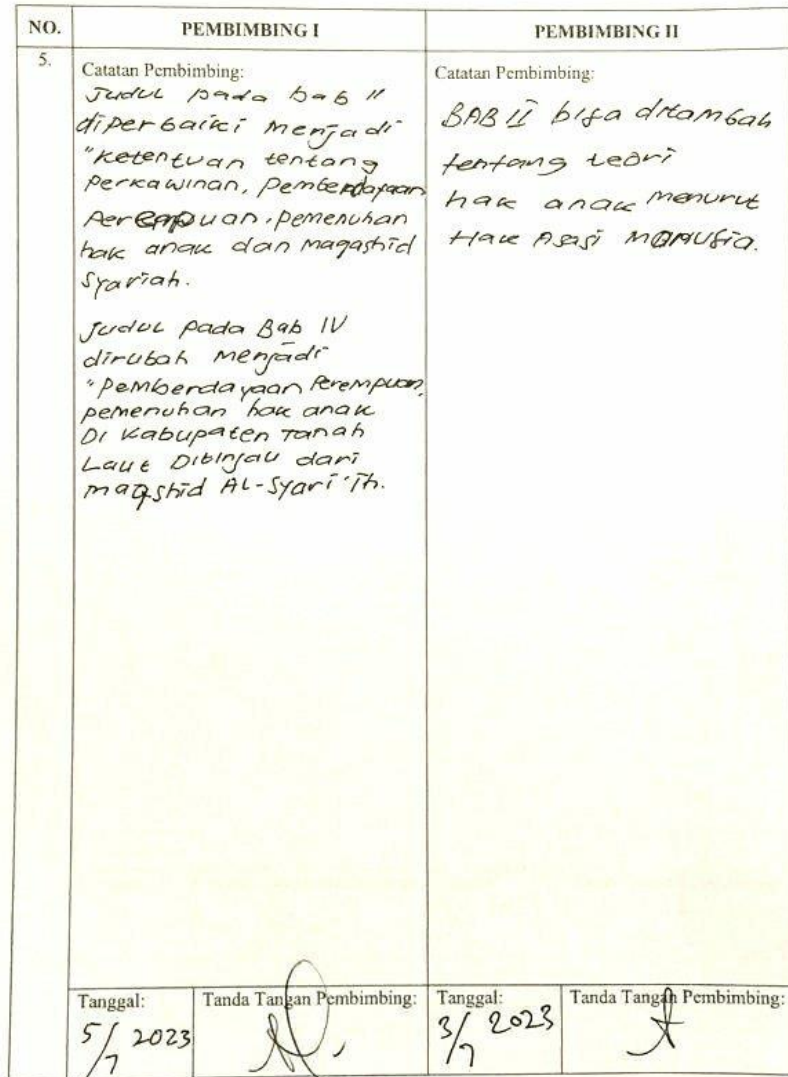 NO.
PEMBIMBING I
PEMBIMBING II
5.
Catatan Pembimbing:
Judul pada bab II
diperbaiki menjadi
"Ketentuan tentang
Perkawinan, Pemberdayaan
Perempuan, pemenuhan
hak anak dan Maqashid
Syariah.
Judul pada Bab IV
dirubah menjadi
"Pemberdayaan Perempuan,
pemenuhan hak anak
Di Kabupaten Tanah
Laut Ditinjau dari
maqshid AL-Syari'ih.
Catatan Pembimbing:
BAB II bisa ditambah
tentang teori
hak anak menurut
Hak Asasi Manusia.
Tanggal:
5/7 2023
Tanda Tangan Pembimbing:
Tanggal:
3/7 2023
Tanda Tangan Pembimbing: